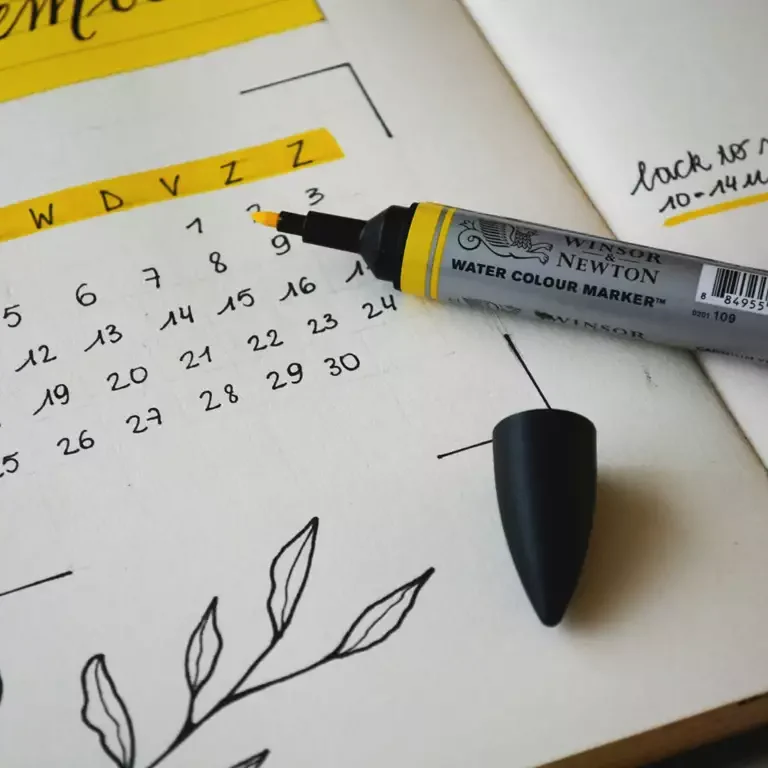 W D V Z Z
1 3
5 6 7 8 9
12 13 14 15 16
19 20 21 22 23 24
25 26 27 28 29 30
back to
10-14
WINSOR
&
NEWTON
WATER COLOUR MARKER™
8 84955
0201 109
WINSOR